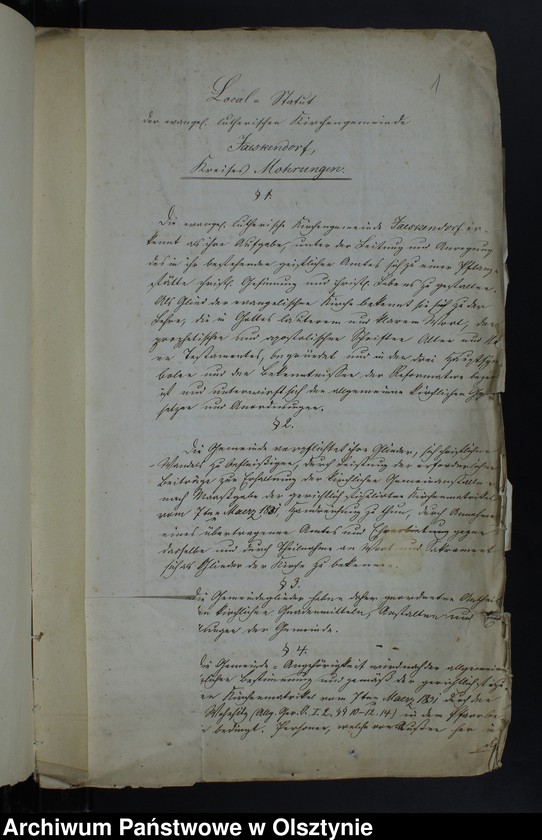 1
Local-Statut
der evangel. lutherischen Kirchengemeinde
Jaeskendorf,
Kreises Mohrungen.
§ 1.
Die evangel. lutherische Kirchengemeinde Jaeskendorf er-
kennt als ihre Aufgabe, unter der Leitung und Anregung
des in ihr bestehenden geistlichen Amtes sich zu einer Pflanz-
stätte christl. Gesinnung und christl. Lebens zu gestalten.
Als Glied der evangelischen Kirche bekennt sie sich zu der
Lehre, die in Gottes lauterem und klarem Wort, den
prophetischen und apostolischen Schriften Alten und
Testamentes, begründet und in den drei Haupt
und den Bekenntnissen der Reformation
ist und unterwirft sich den allgemeinen kirchlichen Ge-
setzen und Anordnungen.
§ 2.
Die Gemeinde verpflichtet ihre Glieder, sich christlichen
Wandels zu befleissigen, durch Leistung der erforderlichen
Beiträge zur Erhaltung der kirchlichen Gemeindeanstalten
nach Maassgabe der gerichtlich Kirchenmatrikel
vom 7ten Maerz 1831 Handreichung zu thun, durch Annahme
eines übertragenen Amtes und Ehrerbietung gegen
dasselbe und durch Theilnahme an Wort und Sakrament
sich als Glieder der Kirche zu bekennen.
§ 3.
Die Gemeindeglieder haben daher geordneten
an kirchlichen Gnadenmitteln, Anstalten und
der Gemeinde.
§ 4.
Die Gemeinde-Angehörigkeit wird nach der allgemeinen
Bestimmung und gemäß der gerichtlich
Kirchenmatrikel vom 7ten Maerz 1831 durch den
Wohnsitz (Allg. Ger. O. I. 2. §§ 10-12. 14) in dem
bedingt. Personen, welche von Aussen her
Archiwum Państwowe w Olsztynie